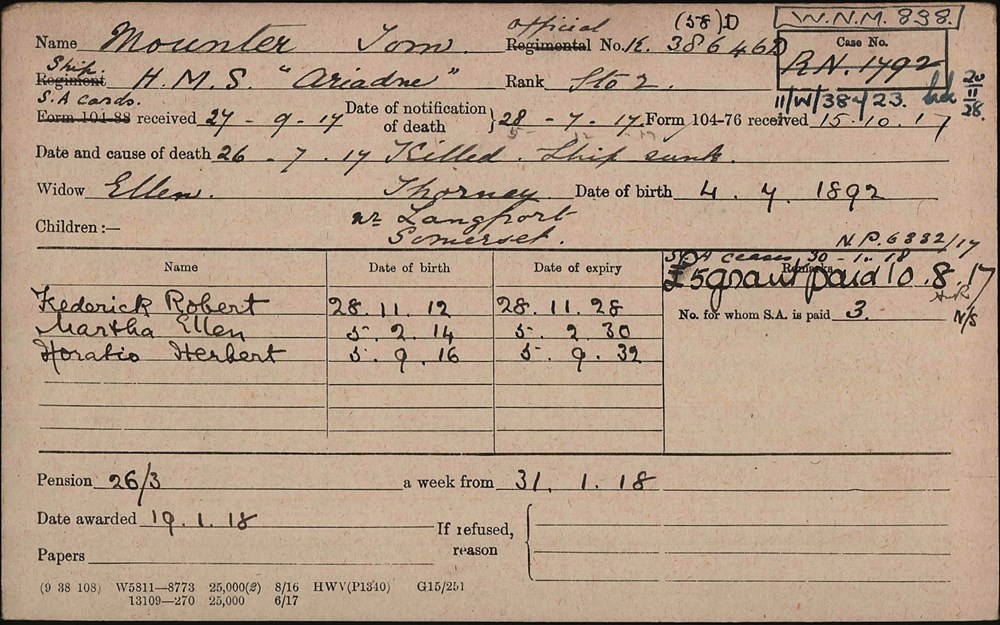 Official (58)D W.N.M. 838.
Name Mounter Tom. Regimental No. K. 38646 D Case No. R.N. 1792
Ship.
Regiment H.M.S. "Ariadne" Rank Sto 2. 11/W/38423. 20/11/28.
S.A cards.
Form 104-88 received 27 - 9 - 17 Date of notification of death } 28 - 7 - 17 Form 104-76 received 15.10.17
Date and cause of death 26 - 7 - 17 Killed. Ship sunk.
Widow Ellen. Thorney Date of birth 4. 4. 1892
nr Langport
Children :— Somerset.
N.P. 6332/17
S.A ceases 30 - 1 - 18
Name Date of birth Date of expiry Remarks
£5 grant paid 10.8.17
Frederick Robert 28.11.12 28.11.28
No. for whom S.A. is paid 3. N/S
Martha Ellen 5.2.14 5.2.30
Horatio Herbert 5.9.16 5.9.32
Pension 26/3 a week from 31. 1. 18
Date awarded 19.1.18 If refused, reason
Papers
(9 38 108) W5811—8773 25,000(2) 8/16 HWV(P1340) G15/251
13109—270 25,000 6/17